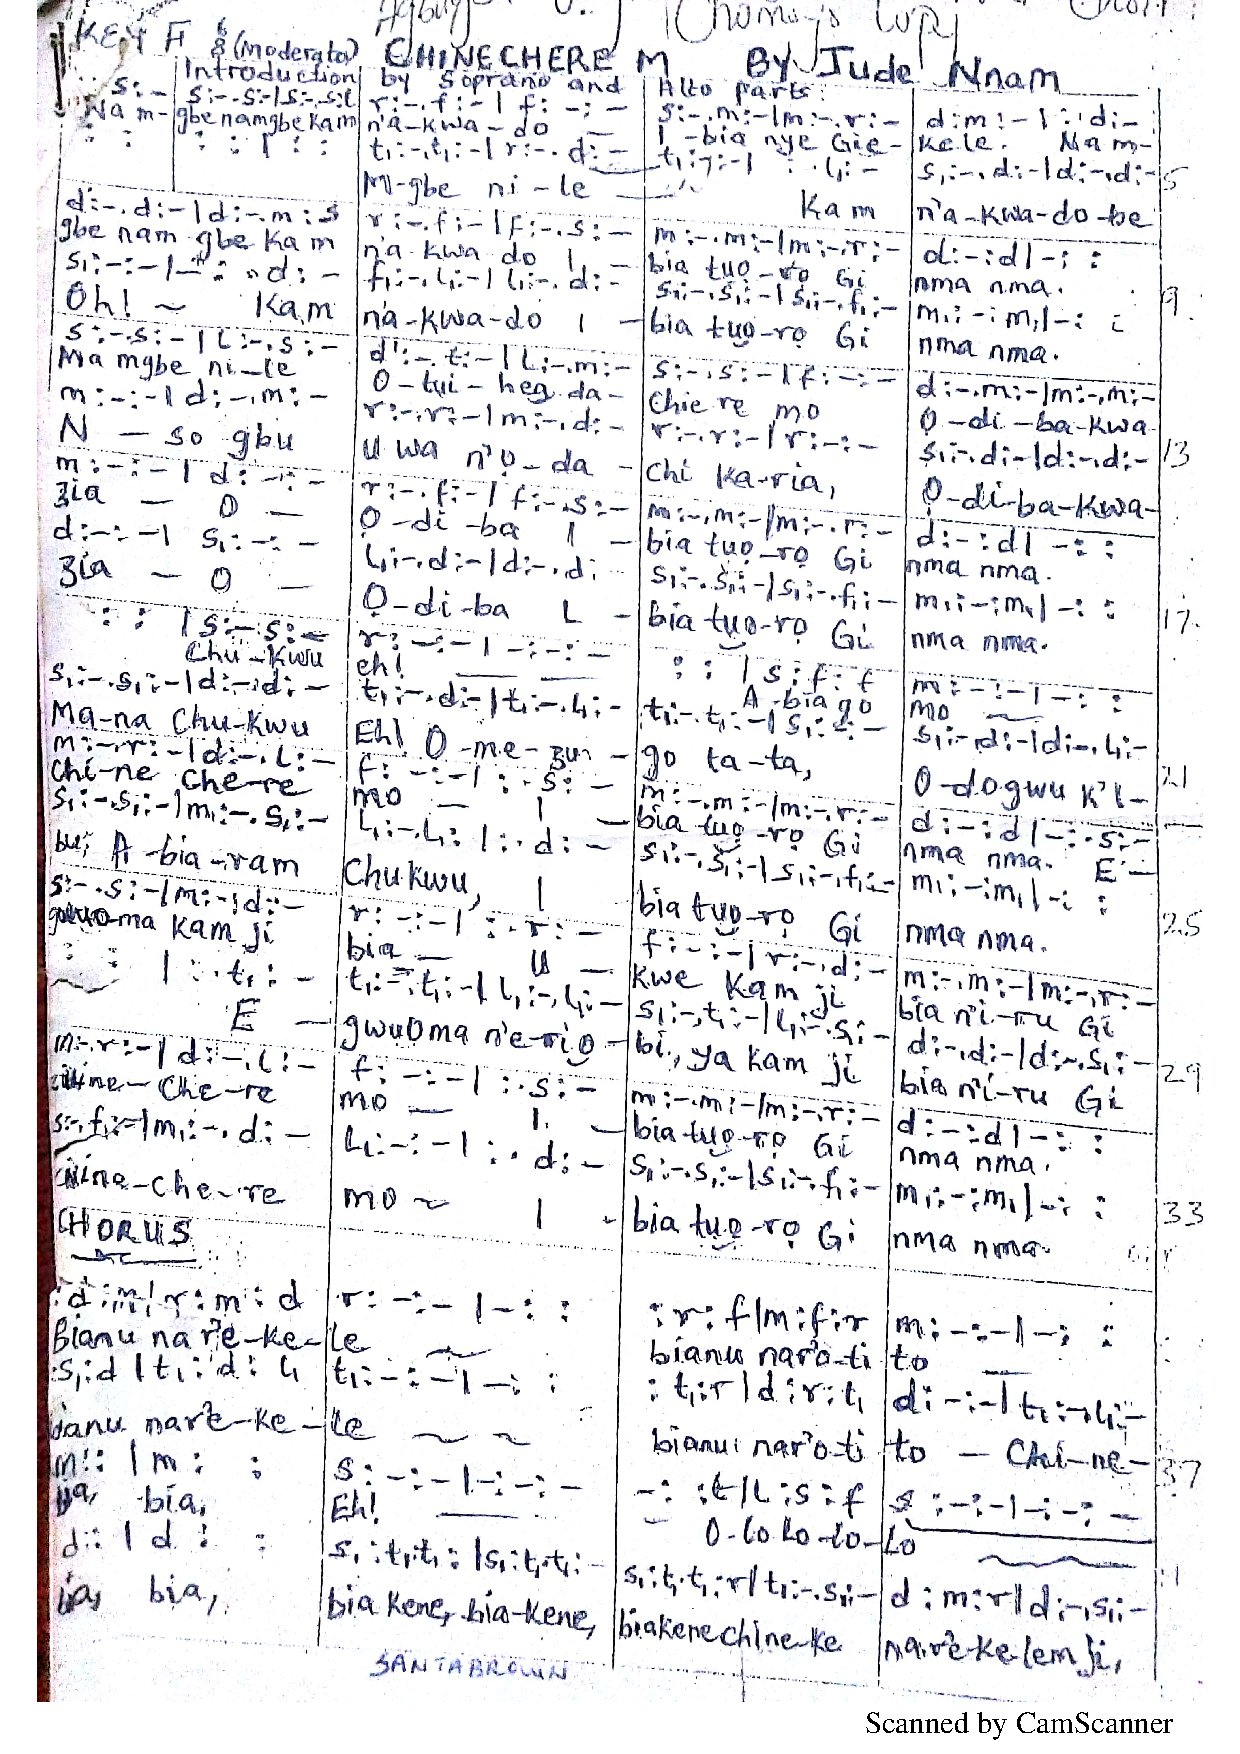 KEY F 6/8 (Moderato) CHINECHERE M By Jude Nnam
Introduction by Soprano and Alto parts:
s:- | s:-.s:-|s:-.s:l | r:-.f:-|f:-:- | s:-.m:-|m:-.r:- | d:m:-|:d:-
Nam-gbe nam gbe kam n'a-kwa-do — I-bia nye Gi e-ke le. Nam-
: : | : : | t₁:-.t₁:-|r:-.d:- | t₁:-:-|:.l₁:- | s₁:-.d:-|d:-.d:- 5
M-gbe ni-le — Kam n'a-kwa-do-be
d:-.d:-|d:-.m:s | r:-.f:-|f:-.s:- | m:-.m:-|m:-.r:- | d:-:d|-: :
gbe nam gbe kam n'a-kwa do I — bia tuọ-rọ Gi nma nma.
s₁:-:-|-: :d:- | f₁:-.l₁:-|l₁:-.d:- | s₁:-.s₁:-|s₁:-.f₁:- | m₁:-:m₁|-: : 9
Oh! ~ Kam n'a-kwa-do I — bia tuọ-rọ Gi nma nma.
s:-.s:-|l:-.s:- | d':-.t:-|l:-.m:- | s:-.s:-|f:-:- | d:-.m:-|m:-.m:-
Ma mgbe ni-le O-tui-heg da- Chie re mo Ọ-di-ba-kwa
m:-:-|d:-.m:- | r:-.r:-|m:-.d:- | r:-.r:-|r:-:- | s₁:-.d:-|d:-.d:- 13
N — so gbu U wa n'ọ-da- chi ka-ria, Ọ-di-ba-kwa-
m:-:-|d:-:- | r:-.f:-|f:-.s:- | m:-.m:-|m:-.r:- | d:-:d|-: :
zia — O — Ọ-di-ba I — bia tuọ-rọ Gi nma nma.
d:-:-|s₁:-:- | l₁:-.d:-|d:-.d: | s₁:-.s₁:-|s₁:-.f₁:- | m₁:-:m₁|-: : 17.
zia — O — Ọ-di-ba I — bia tuọ-rọ Gi nma nma.
: : |s:-.s:- | r:-:-|-:-:- | : : |s:f:f | m:-:-|-: :
Chu-kwu eh! A-bia go mo
s₁:-.s₁:-|d:-.d:- | t₁:-.d:-|t₁:-.l₁:- | t₁:-.t₁:-|s₁:-:- | s₁:-.d:-|d:-.l₁:- 21
Ma-na Chu-kwu Eh! O-me-zu- go ta-ta, O-dogwu k'I-
m:-.r:-|d:-.l:- | f:-:-|:.s:- | m:-.m:-|m:-.r:- | d:-:d|-:.s:-
Chi-ne Che-re mo — I — bia tuọ-rọ Gi nma nma. E —
s₁:-.s₁:-|m₁:-.s₁:- | l₁:-.l₁:|:.d:- | s₁:-.s₁:-|s₁:-.f₁:- | m₁:-:m₁|-: : 25
bu, A-bia-ram Chukwu, I bia tuọ-rọ Gi nma nma.
s:-.s:-|m:-.d:- | r:-:-|:.r:- | f:-:-|r:-.d:- | m:-.m:-|m:-.r:-
gwuoma kam ji bia — U — kwe kam ji bia n'i-ru Gi
: : |:.t₁:- | t₁:-.t₁:-|l₁:-.l₁:- | s₁:-.t₁:-|l₁:-.s₁:- | d:-.d:-|d:-.s₁:- 29
E — gwuoma n'e-ri ọ-bi, ya kam ji bia n'i-ru Gi
m:-.r:-|d:-.l:- | f:-:-|:.s:- | m:-.m:-|m:-.r:- | d:-:d|-: :
Chine-Che-re mo — I. — bia tuọ-rọ Gi nma nma.
s:-.f₁:-|m₁:-.d:- | l₁:-:-|:.d:- | s₁:-.s₁:-|s₁:-.f₁:- | m₁:-:m₁|-: : 33
Chine-che-re mo ~ I - bia tuọ-rọ Gi nma nma.
CHORUS
:d:m|r:m:d | r:-:-|-: : | :r:f|m:f:r | m:-:-|-: :
Bianu na r'e-ke-le bianu nar'o-ti to
:s₁:d|t₁:d:l₁ | t₁:-:-|-: : | :t₁:r|d:r:t₁ | d:-:-|t₁:-.l₁:-
bianu nar'e-ke-le ~ ~ bianu nar'o-ti to — Chi-ne- 37
m:: |m: : | s:-:-|-:-:- | -: :t|l:s:f | s:-:-|-:-:-
bia, bia, Eh! O-lo lo-lo-lo
d:: |d: : | s₁:t₁.t₁:|s₁:t₁.t₁:- | s₁:t₁.t₁:r|t₁:-.s₁:- | d:m:r|d:-.s₁:-
bia, bia, bia kene, bia-kene, biakene chine-ke na r'e-ke lem ji,
SANTABROWN
Scanned by CamScanner